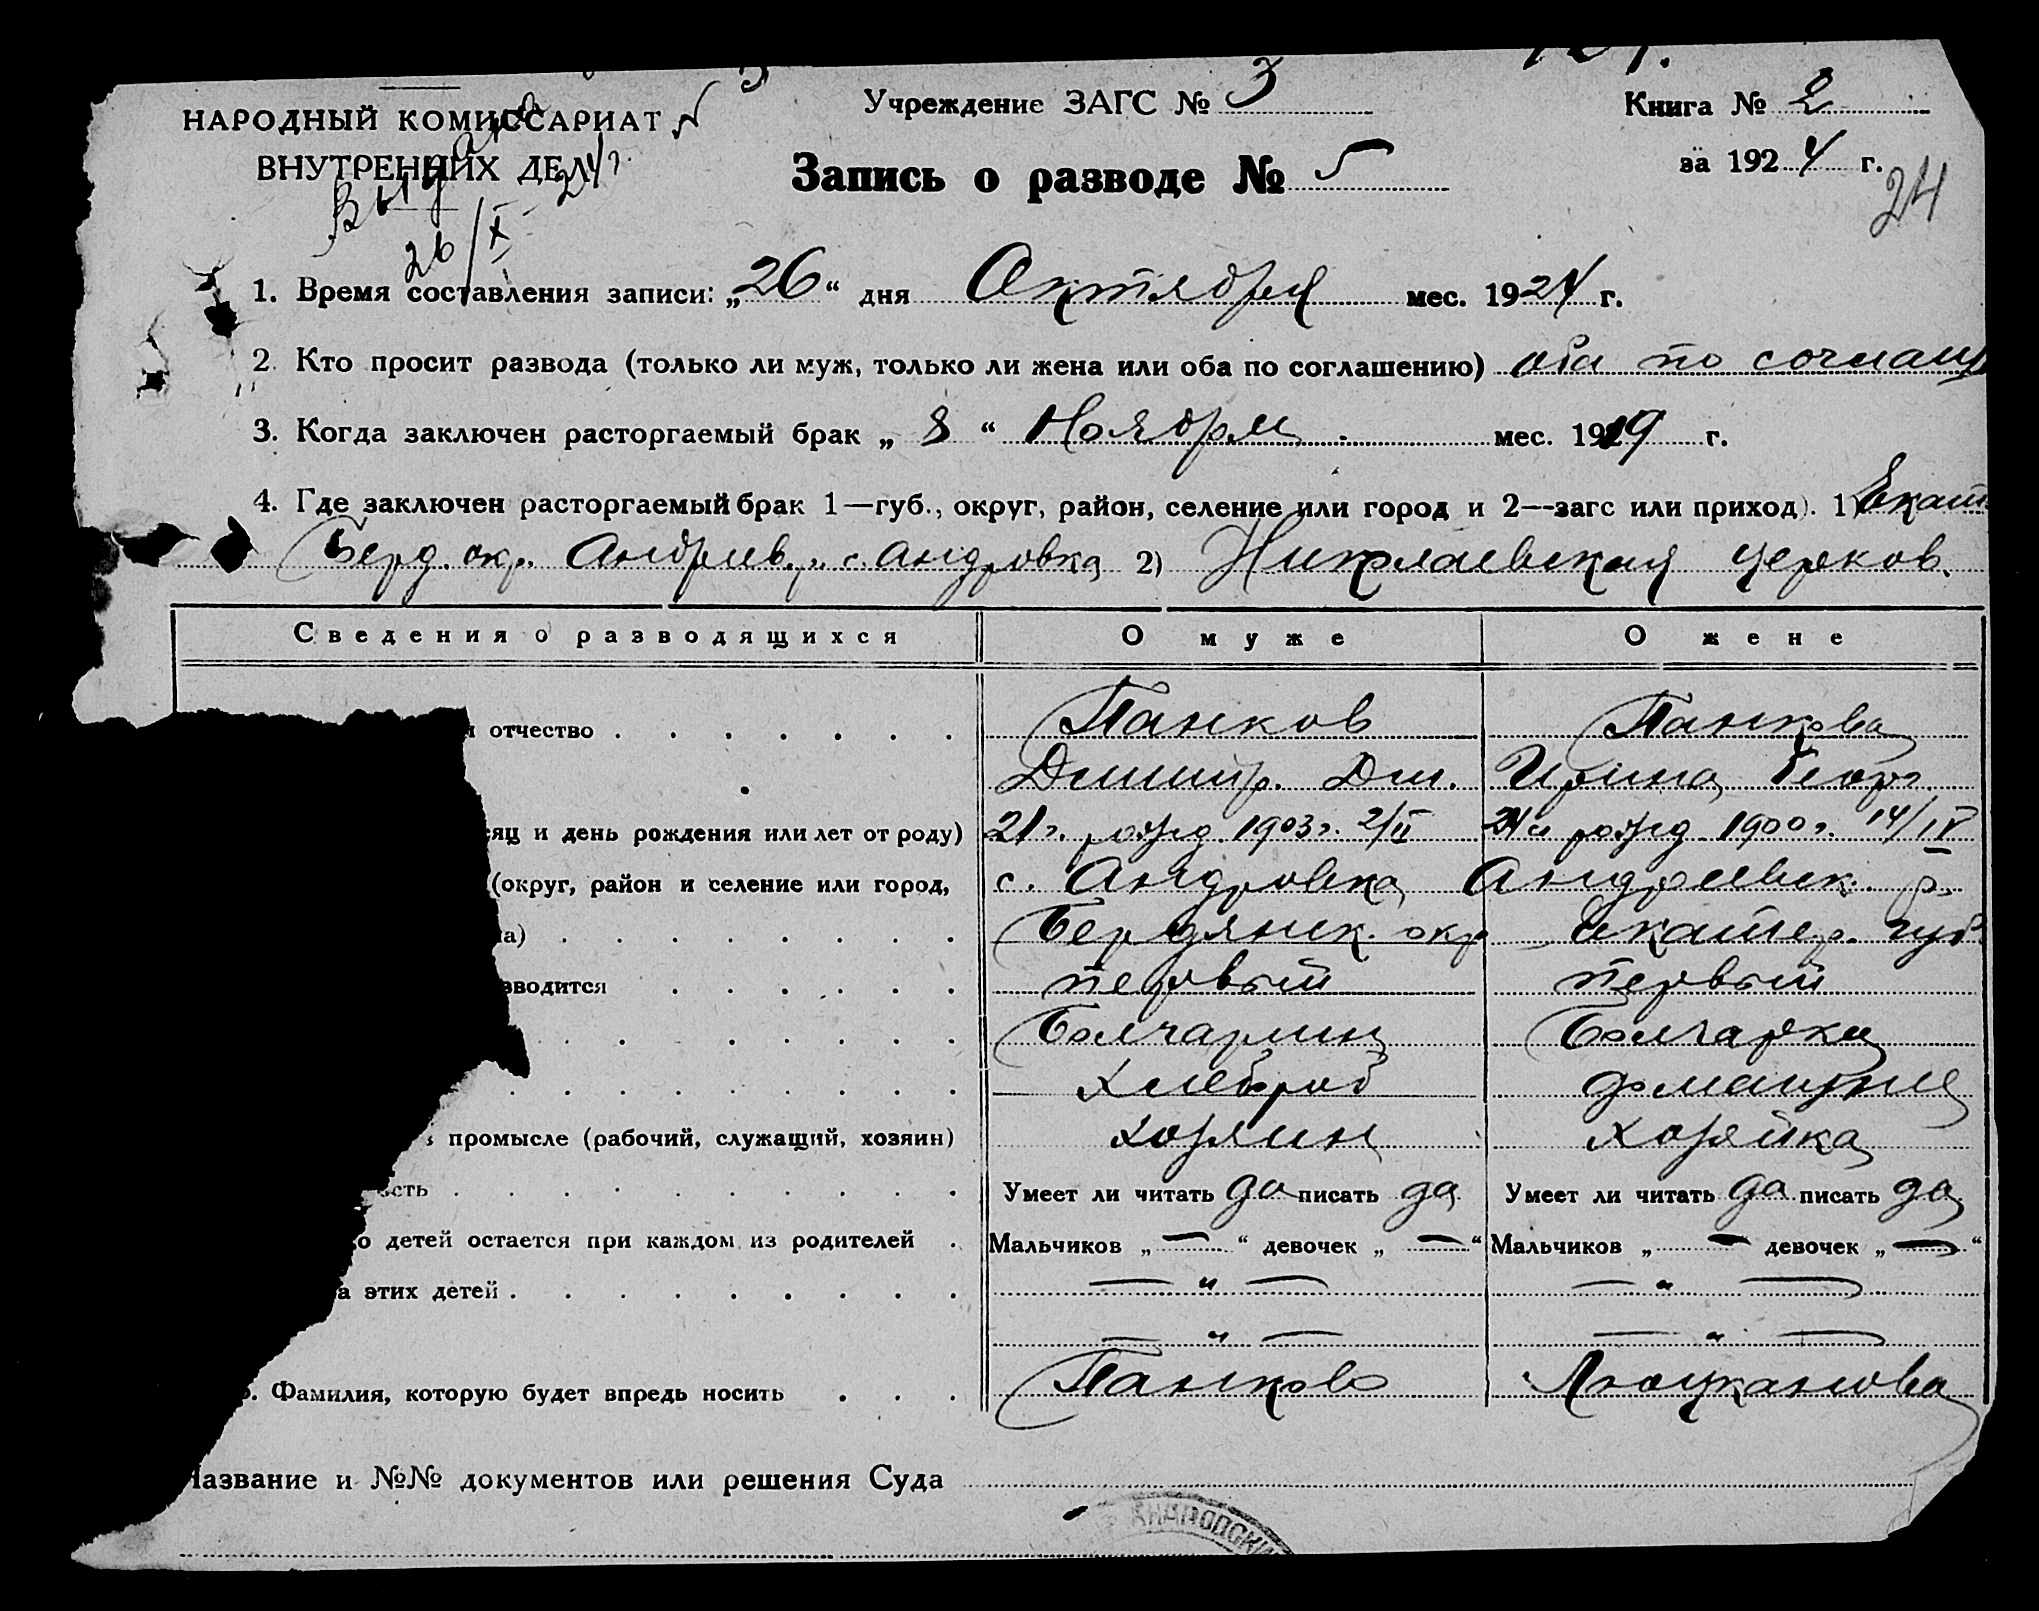 НАРОДНЫЙ КОМИССАРИАТ
ВНУТРЕННИХ ДЕЛ
Выдана
26/X-24г.
Учреждение ЗАГС № 3
Книга № 2
за 1924 г.
24
Запись о разводе № 5
1. Время составления записи: „26“ дня Октября мес. 1924 г.
2. Кто просит развода (только ли муж, только ли жена или оба по соглашению) оба по соглаш
3. Когда заключен расторгаемый брак „ 8 “ Ноября мес. 1919 г.
4. Где заключен расторгаемый брак 1—губ., округ, район, селение или город и 2—загс или приход). 1) Екат
Берд. окр. Андриев. р. с. Андровка 2) Николаевская церков.
Сведения о разводящихся О муже О жене
отчество . . . . . . . Панков Панкова
Дмитр. Дм. Ирина Георг.
сяц и день рождения или лет от роду) 21 г. рожд 1903 г. 2/II рожд 1900 г. 14/IV
(округ, район и селение или город, с. Андровка Андреевск. р.
а) . . . . . . . . Бердянск. окр Екатер. губ.
зводится . . . . . . первый первый
Болгарин Болгарка
Хлебороб домашние
промысле (рабочий, служащий, хозяин) хозяин хозяйка
ость . . . . . . . . . . Умеет ли читать да писать да Умеет ли читать да писать да
о детей остается при каждом из родителей . Мальчиков „ — “ девочек „ — “ Мальчиков „ — девочек „ — “
а этих детей . . . . . . . . . — „ — — „ —
— „ — — „ —
. Фамилия, которую будет впредь носить . . . Панков Люцканова
Название и №№ документов или решения Суда